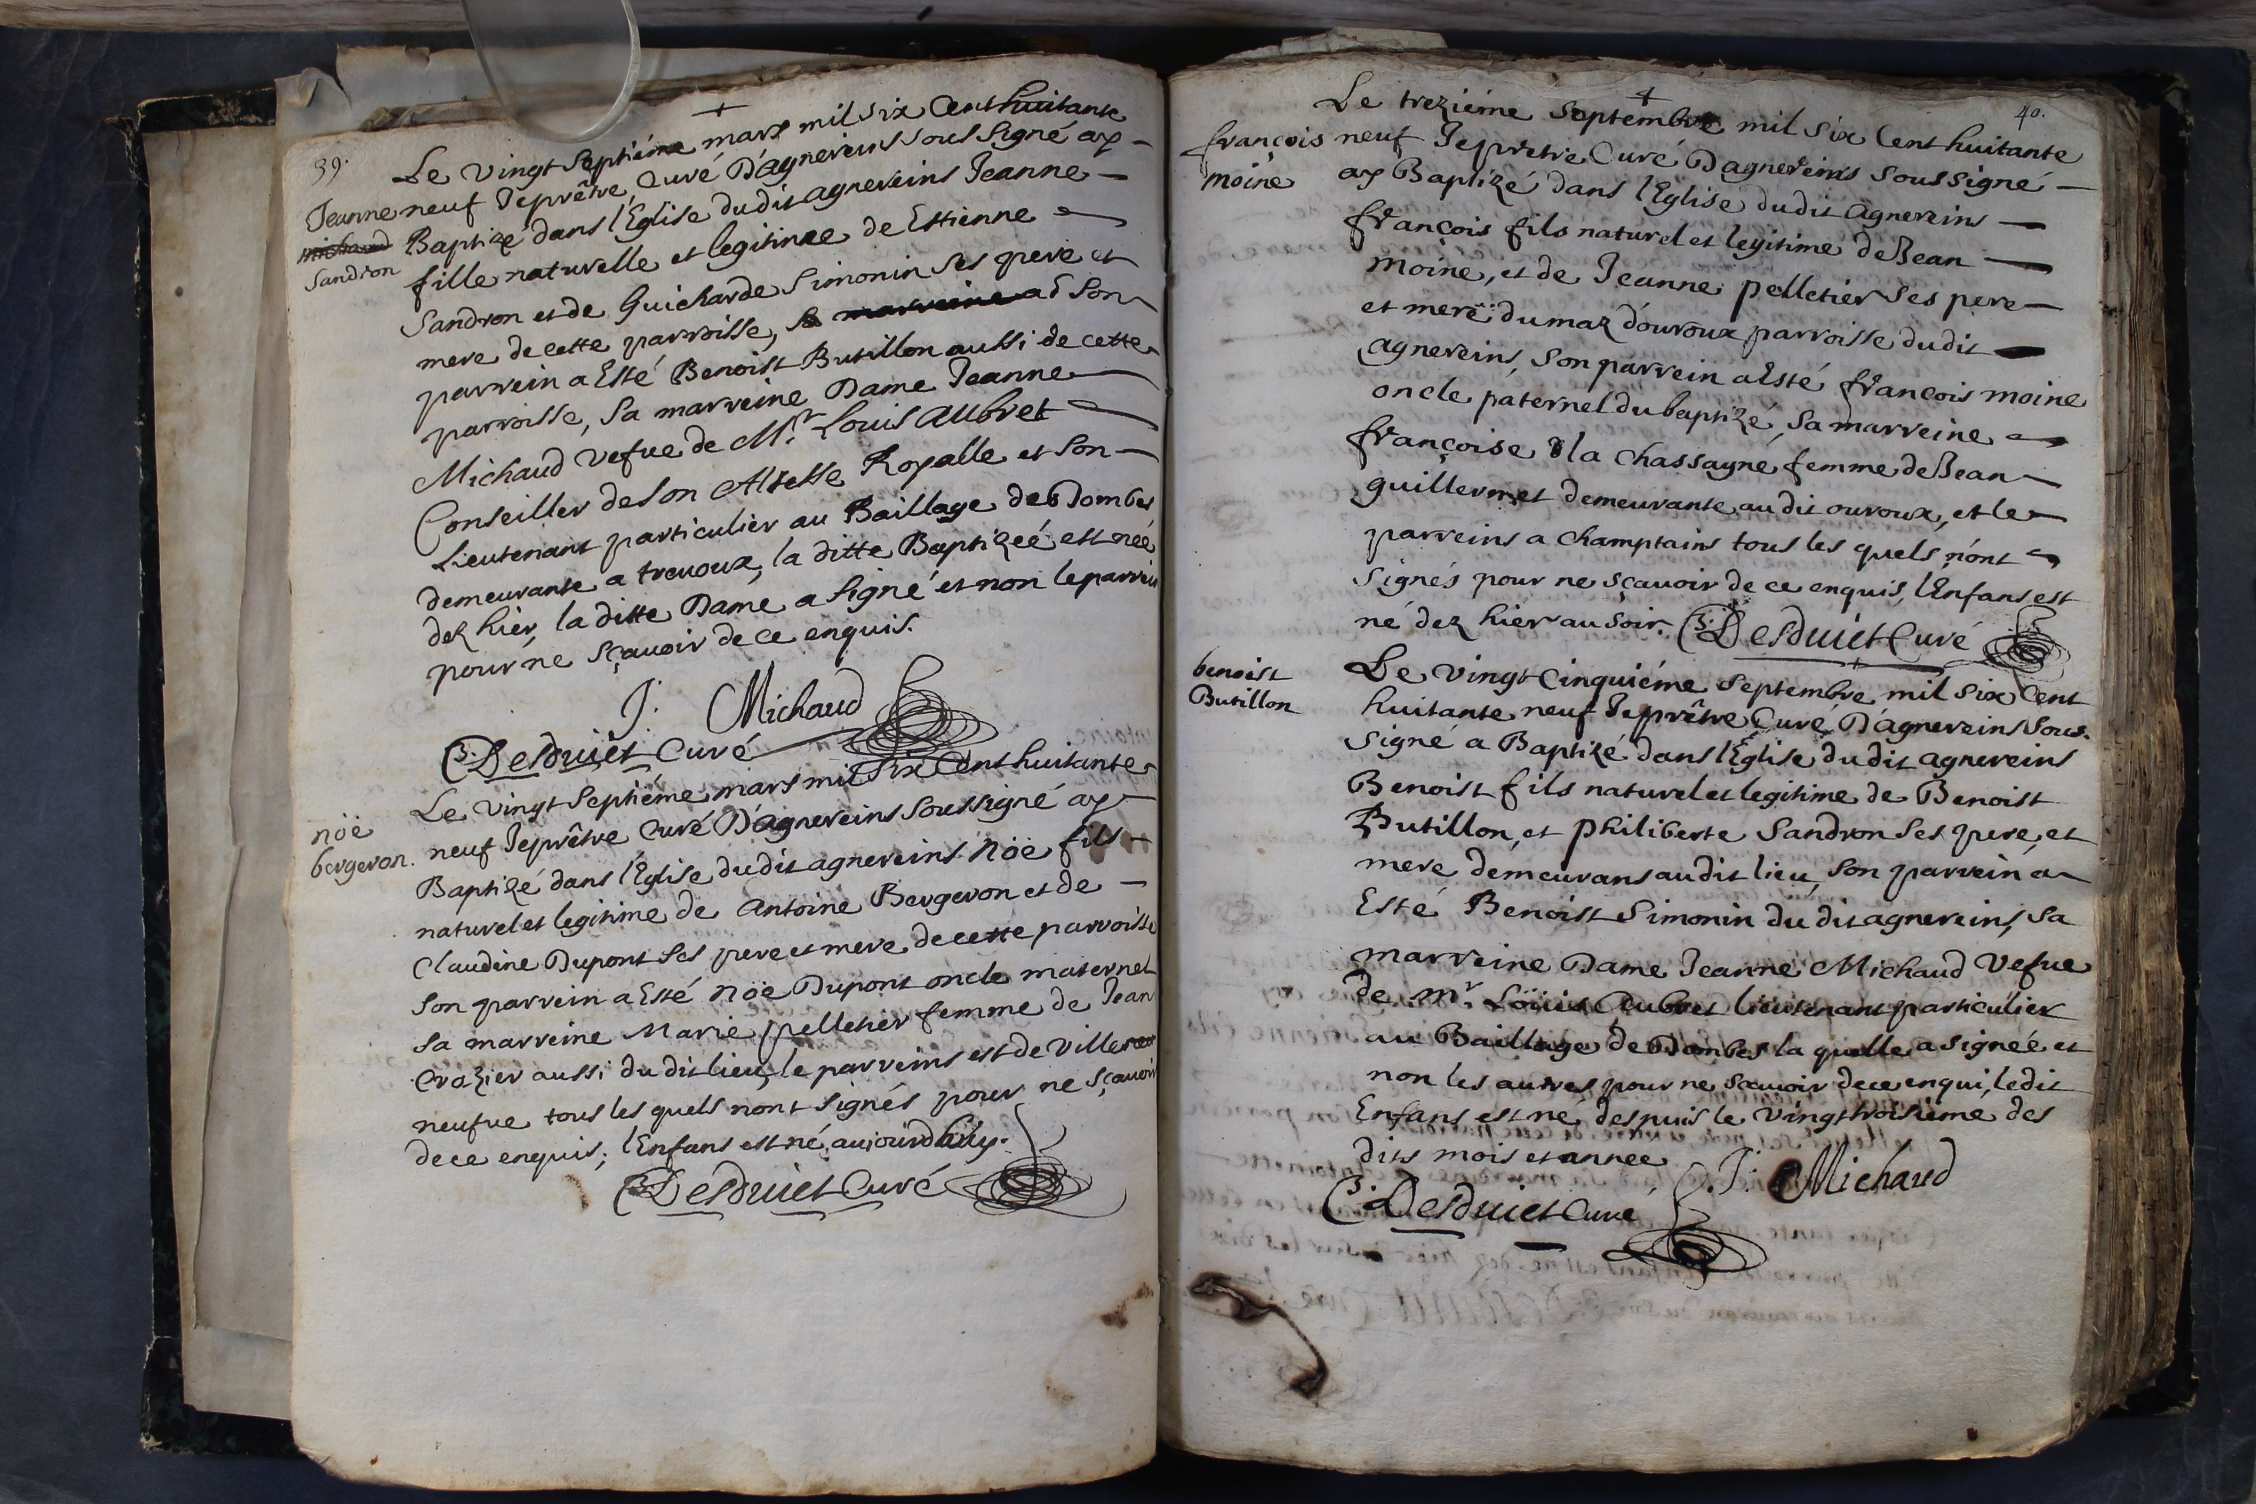 39.
Le vingt septiéme mars mil six Cent huitante
neuf Je prêtre, Curé D'agnereins sous signé ay
Jeanne
michaud
Sandron
Baptizé dans l'Eglise dudit agnereins Jeanne
fille naturelle et legitime de Estienne
Sandron et de Guicharde Simonin ses pere et
mere de cette parroisse, sa marreine a Son
parrein a Esté Benoist Butillon aussi de cette
parroisse, Sa marreine Dame Jeanne
Michaud vefue de Mr. Louis Aubret
Conseiller de son Altesse Royalle et son
Lieutenant particulier au Baillage de Dombes
demeurante a trevoux, la ditte Baptizeé est neé
dez hier, la ditte Dame a signé et non le parrein
pour ne sçavoir de ce enquis.
J: Michaud
Desduiet Curé
nöe
bergeron.
Le vingt septiéme mars mil six Cent huitante
neuf Je prêtre Curé D'agnereins soussigné ay
Baptizé dans l'Eglise dudit agnereins nöe fils
naturel et legitime de Antoine Bergeron et de
Claudine Dupont ses pere et mere de cette parroisse
son parrein a Esté nöe Dupont oncle maternel
sa marreine Marie pelletier femme de Jean
Crozier aussi dudit lieu, le parreins est de ville
neufue tous les quels n'ont signés pour ne sçavoir
de ce enquis; l'Enfans est né aujourdhuy.
Desduiet Curé
40.
françois
moine
Le treziéme septembre mil six Cent huitante
neuf Je prêtre Curé D'agnereins soussigné
ay Baptizé dans l'Eglise dudit agnereins
françois fils naturel et legitime de Jean
moine, et de Jeanne pelletier ses pere
et mere du maz d'ouroux parroisse dudit
agnereins, son parrein a Esté françois moine
oncle paternel du baptizé, sa marreine
françoise la chassagne femme de Jean
guillermet demeurante audit ouroux, et le
parreins a champtains tous les quels n'ont
signés pour ne sçavoir de ce enquis, l'Enfans est
né dez hier au soir. Desduiet Curé
benoist
Butillon
Le vingt Cinquiéme septembre mil six Cent
huitante neuf Je prêtre Curé D'agnereins sous
signé a Baptizé dans l'Eglise dudit agnereins
Benoist fils naturel et legitime de Benoist
Butillon, et philiberte Sandron ses pere, et
mere demeurans audit lieu, son parrein a
Esté Benoist Simonin dudit agnereins, sa
marreine Dame Jeanne Michaud Vefue
de mr. Loüis Aubret lieutenant particulier
au Baillage de Dombes la quelle a signeé et
non les autres pour ne scavoir de ce enqui, ledit
Enfans est ne despuis le vingt troisieme des
dits mois et annee
J: Michaud
Desduiet Curé